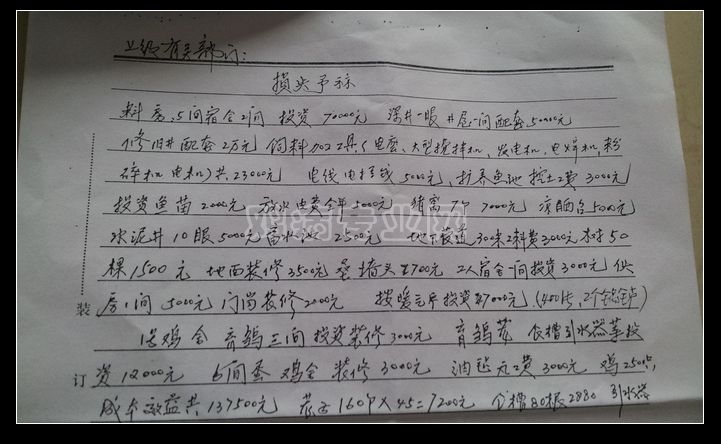 上级有关部门:
损失予标
料房5间宿舍2间 投资70000元 深井一眼井屋一间配套50000元
修旧井配套2万元 饲料加工具(电磨、大型搅拌机、发电机、电焊机,粉
碎机电机)共23000元 电线电杆线5000元,扩养鱼池挖土费3000元
投资鱼苗2000元 放水电费全年5000元 猪窝7个7000元 凉晒台5000元
水泥井10眼5000元 蓄水池2500元 地下管道300米料费3000元 树50
棵1500元 地面装修3500元 垒墙头700元 工人宿舍一间投资3000元 伙
房1间5000元 门岗装修2000元 按暖气片投资47000元(400片,2个锅炉)
1号鸡舍 育鸡三间投资装修3000元 育鸡笼 食槽引水器等投
资12000元 6间蛋鸡舍装修3000元 油毡瓦工费3000元 鸡2500只,
成本效益共137500元 笼子160个×45=7200元 食槽80根2880 引水器
装
订